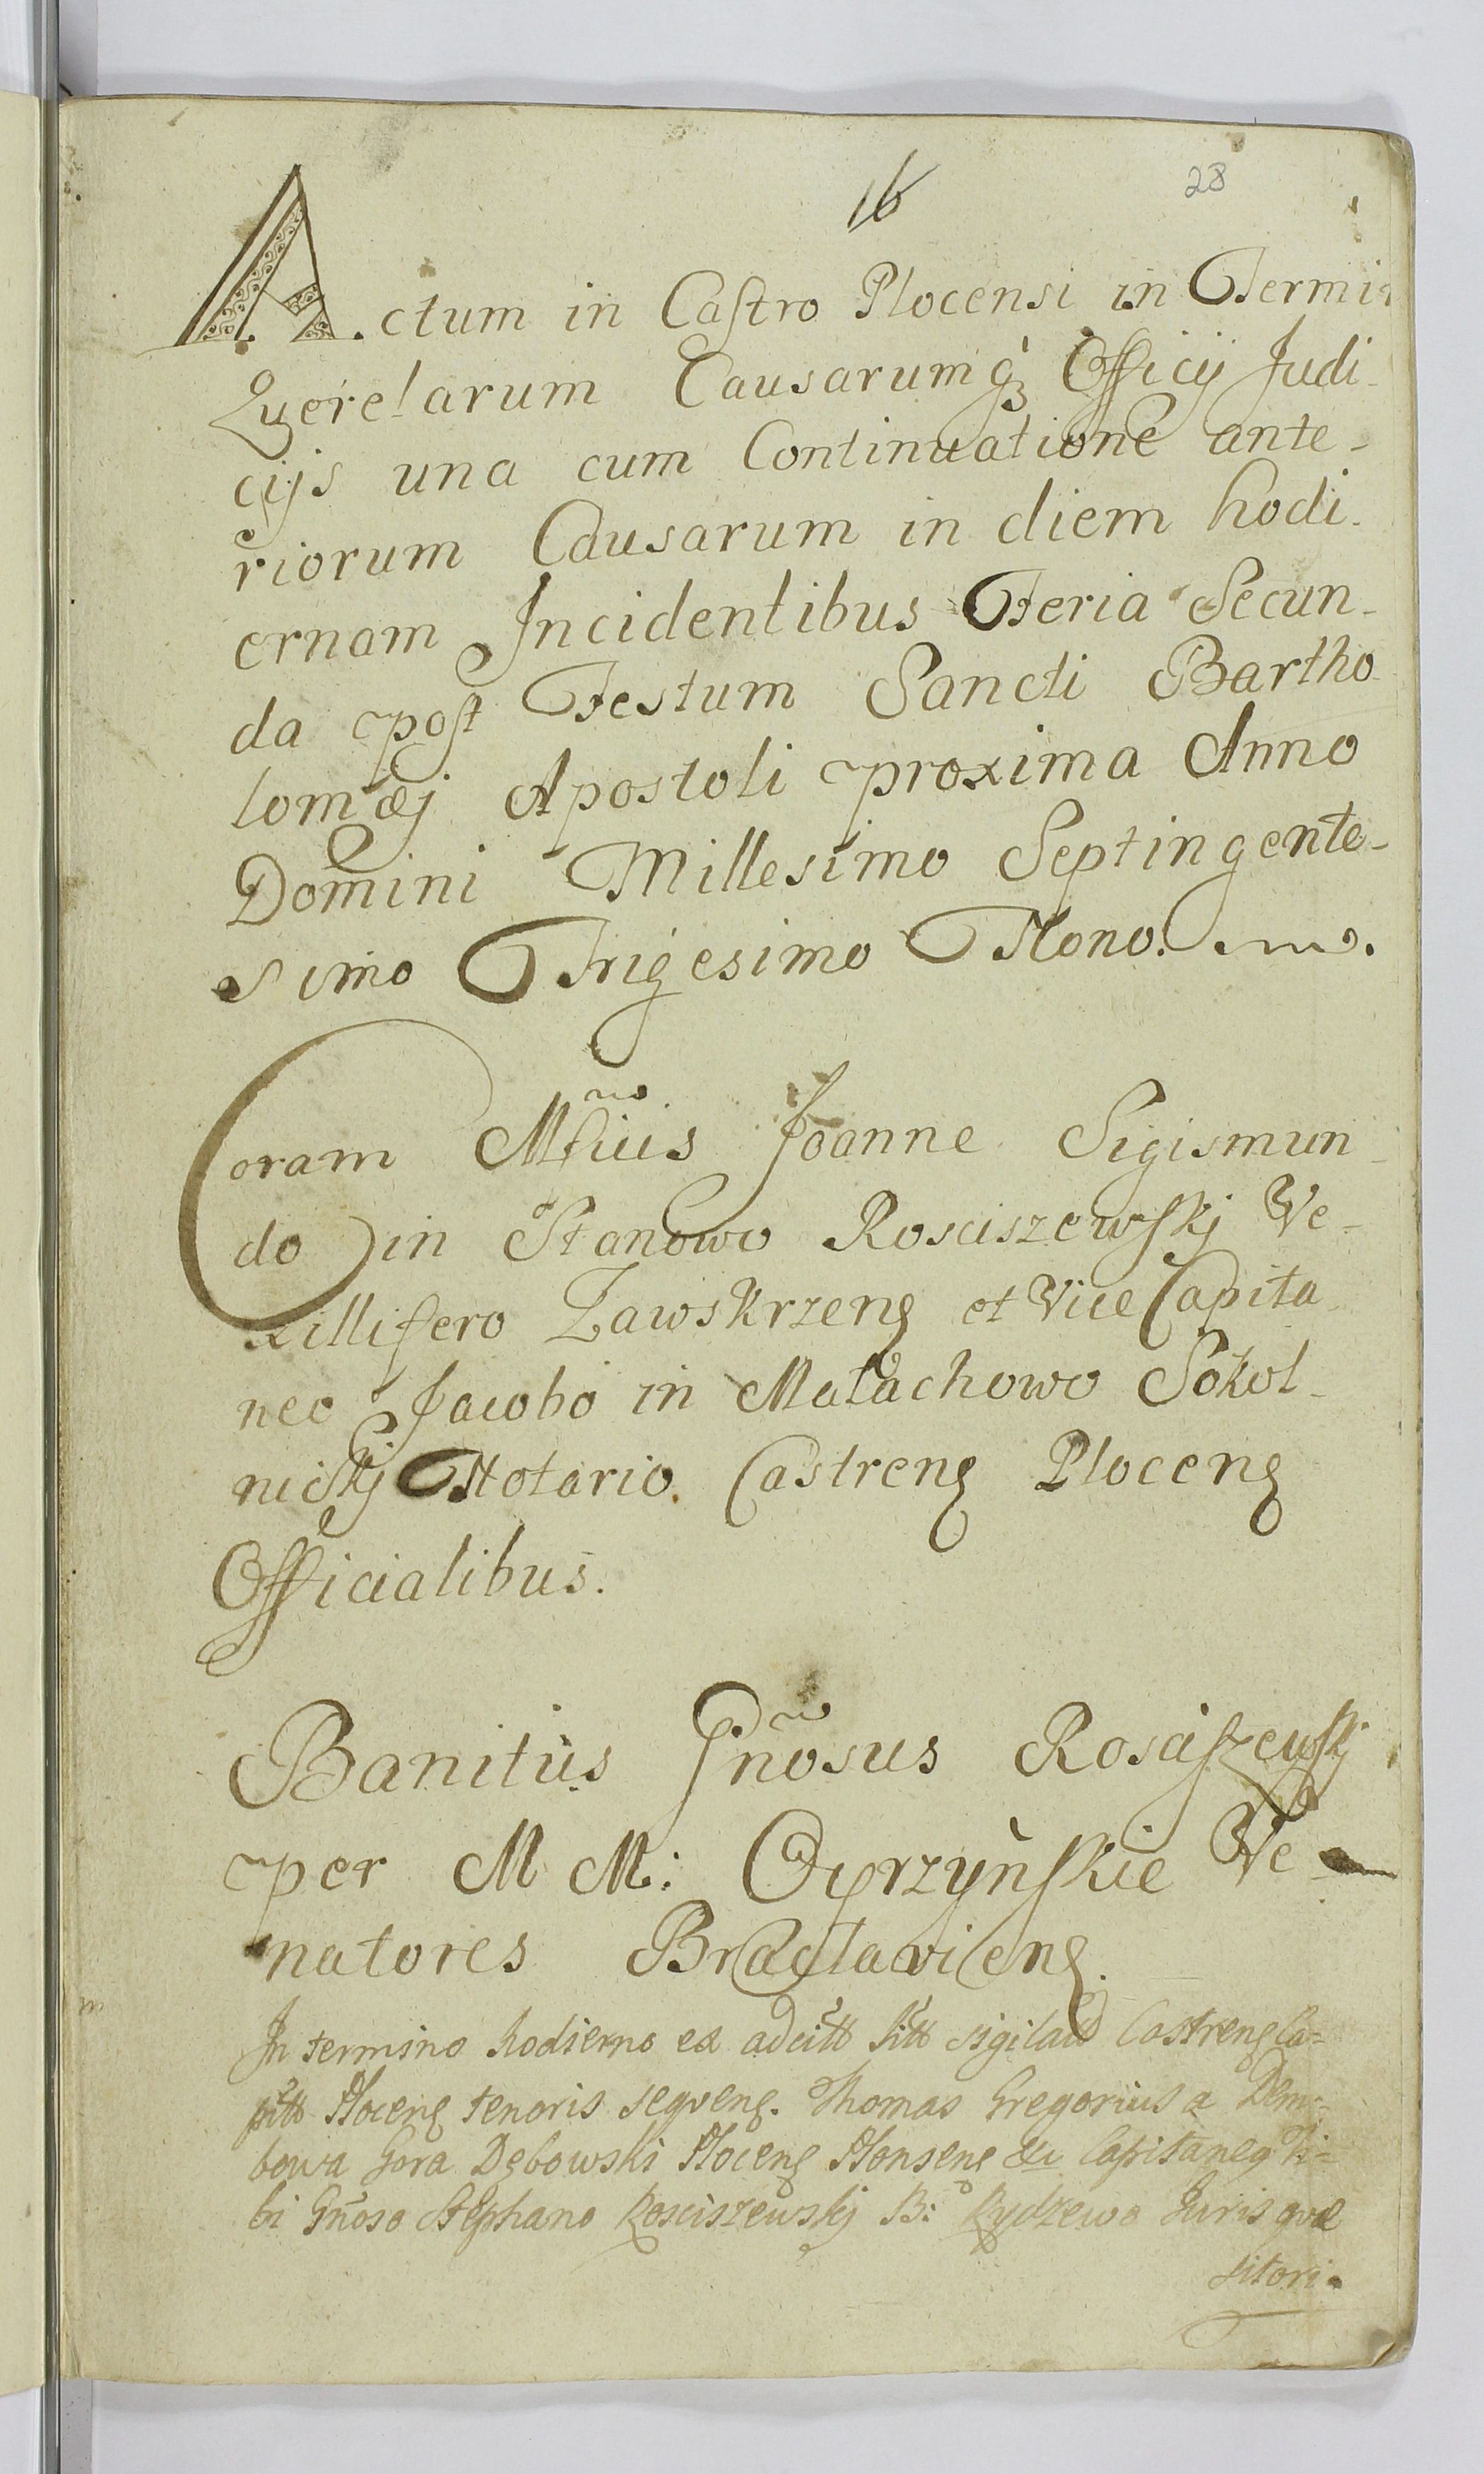 16
28
Actum in Castro Plocensi in Termin
Qverelarum Causarumq₃ Officij Judi-
cijs una cum Continuatione ante-
riorum Causarum in diem hodi-
ernam Incidentibus Feria Secun-
da post Festum Sancti Bartho-
lomæj Apostoli proxima Anno
Domini Millesimo Septingente-
simo Trigesimo Nono.
Coram Mfiũs Joanne Sigismun-
do in Stanowo Rosciszewskj Ve-
xillifero Zawskrzenę et Vice Capita
neo Jacobo in Małachowo Sokol-
nickj Notario Castrenę Plocenę
Officialibus.
Banitus Gñosus Rosciszewskj
per M M: Cyprzyńskie Ve-
natores Braclavienę.
In termino hodierno ex adcitt litt sigilatt Castrenę Ca=
pitt Plocenę tenoris seqvenę. Thomas Gregorius a Dem=
bowa Gora Dębowski Plocenę Plonsenę &c Capitaneg Ti=
bi Gñoso Stephano Rosciszewskj B: Rydzewo Juris qvæ
sitori.